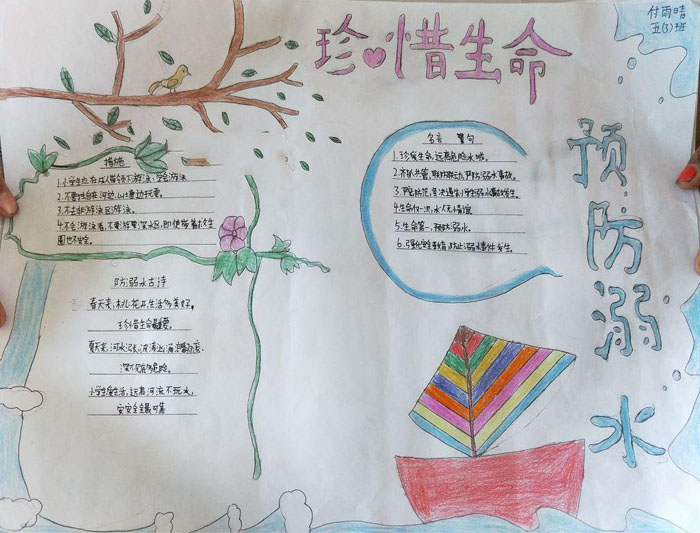 付雨晴
五(3)班
珍惜生命
预防溺水
措施
1.小学生应在成人带领下游泳,学会游泳
2.不要独自在河边、山边玩耍。
3.不去非游泳区游泳。
4.不会游泳者,不要游到深水区,即使带着救生
圈也不安全。
防溺水古诗
春天来,桃花开,生活多美好。
珍惜生命最重要。
夏天来,河水涨,
深不见底多危险。
小学生爱生活,远离河流不玩水,
安安全全最可靠
名言 警句
1.珍爱生命,远离危险水域。
2.齐抓共管,群防群治,严防溺水事故。
3.严密防范,坚决遏制学生溺水事故发生。
4.生命仅一次,水火无情谊
5.生命第一,预防溺水。
6.强化安全教育,防止溺水事件发生。